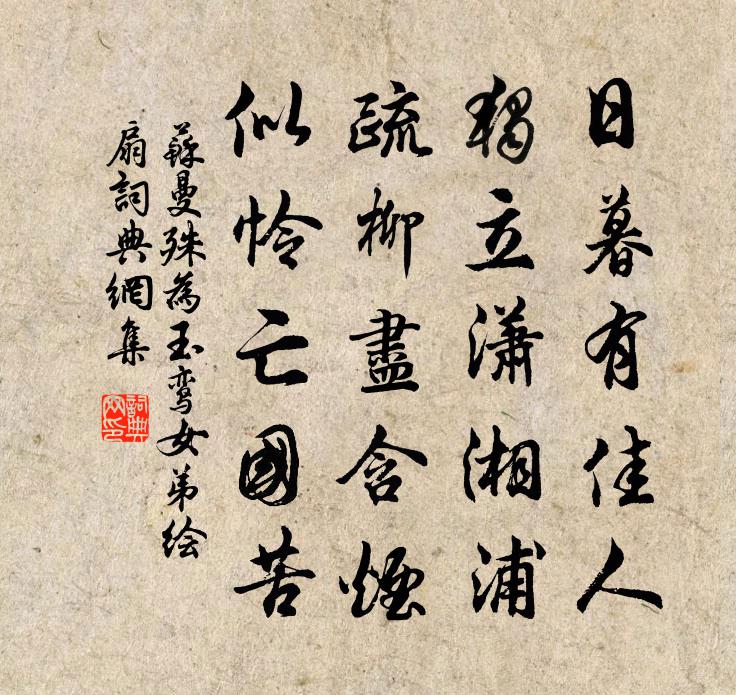 日暮有佳人
獨立瀟湘浦
疏柳盡含煙
似怜亡國苦
蘇曼殊為玉鸾女弟绘
扇詞典網集
詞典
网印